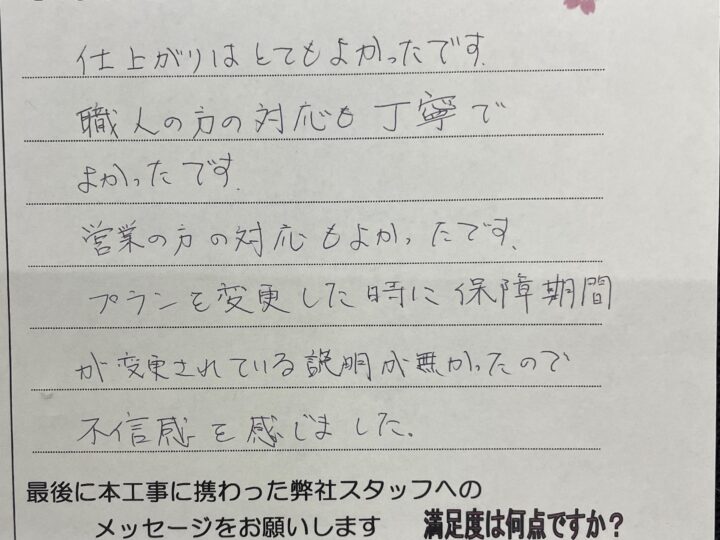 仕上がりはとてもよかったです.
職人の方の対応も丁寧で
よかったです.
営業の方の対応もよかったです.
プランを変更した時に保障期間
が変更されている説明が無かったので
不信感を感じました.
最後に本工事に携わった弊社スタッフへの
メッセージをお願いします 満足度は何点ですか？